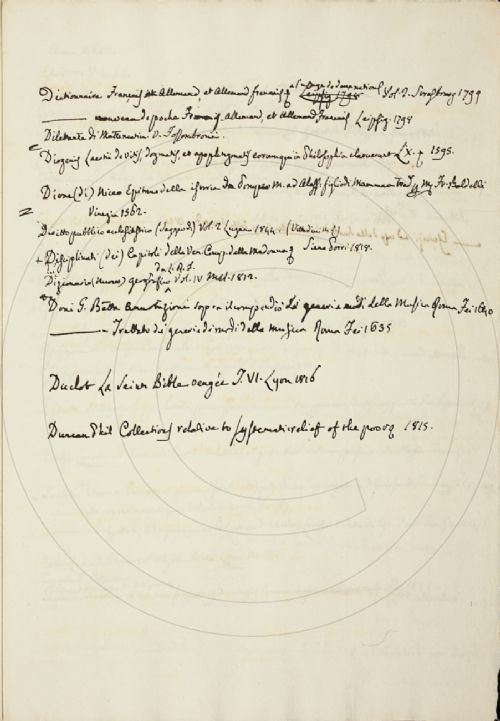 Dictionnaire François Allemand, et Allemand françois à l'usage de deux nations Leipzig 1798 Vol 2. Strasbourg 1799
——— nouveau de poche François, Allemand, et Allemand François Leipzig 1798
Dilettante di Matematica V. Fossombroni.
Diogenis Laertii de vitis, dogmatis, et apophtegmatis eorum qui in Philosophia claruerunt 1595.
Dione (di) Niceo Epitome della istoria da Pompeo M. ad Aless. figlio di Mammea trad. Fr. Baldelli
Vinegia 1562.
Diritto pubblico ecclesiastico (Saggio d) Vol. 2 Lugano
+ Disciplinati (dei) Capitoli della Ven. Comp. della Madonna Siena Porri 1818.
Dizionario (nuovo) geografico Vol. IV Mil. 1812.
Doni G. Batta Annotazioni sopra il compendio dei generi e modi della Musica Roma Fei 1640
——— Trattato de generi e di modi della musica Roma Fei 1635
Duclot La Sainte Bible vengée T. VI. Lyon 1816
Duncan Phil Collections relative to systematic relief of the poor 1815.